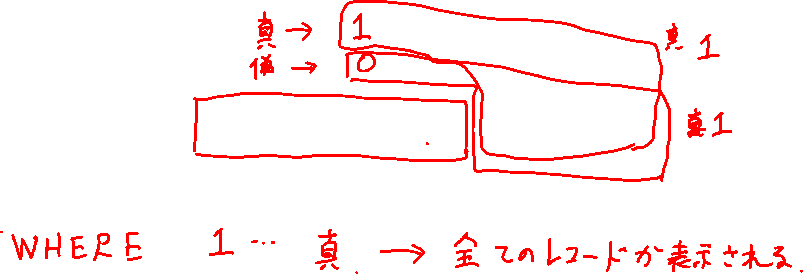 真→ 1 真1
偽→ 0
真1
WHERE 1… 真 → 全てのレコードが表示される.